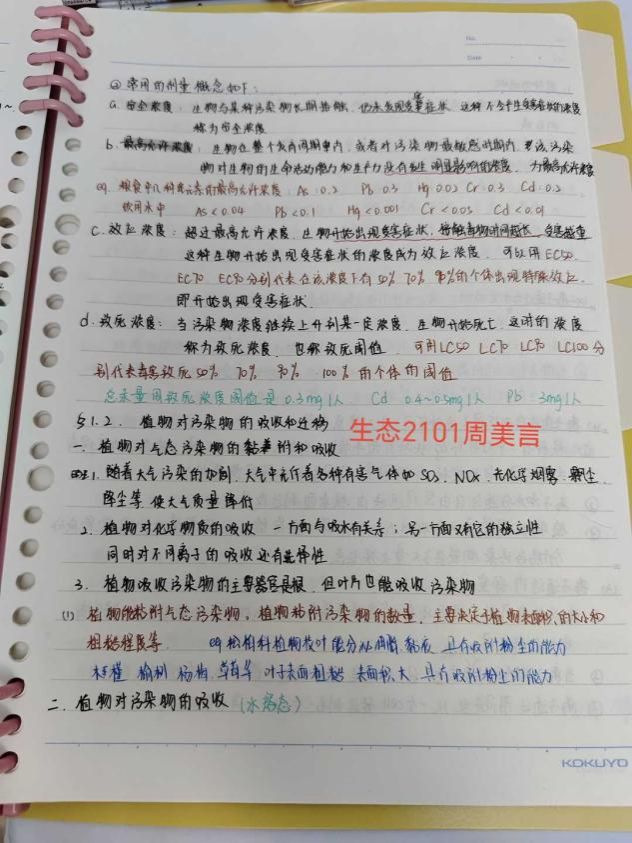 No.
Date
② 常用的剂量概念如下：
a. 安全浓度：生物与某种污染物长期接触，仍未发现受害症状，这种不会产生受害症状的浓度
称为安全浓度
b. 最高允许浓度：生物在整个发育周期中内，或者对污染物最敏感时期内，该污染
物对生物的生命活动能力和生产力没有发生明显影响的浓度，为最高允许浓度
例. 粮食中几种元素的最高允许浓度：As 0.2 Pb 0.3 Hg 0.02 Cr 0.3 Cd 0.2
饮用水中 As<0.04 Pb<0.1 Hg<0.001 Cr<0.05 Cd<0.01
c. 效应浓度：超过最高允许浓度，生物开始出现受害症状，接触毒物时间越长，受害越重
这种生物开始出现受害症状的浓度成为效应浓度，可以用EC50
EC70 EC90分别代表在该浓度下有50% 70% 90%的个体出现特殊效应
即开始出现受害症状
d. 致死浓度：当污染物浓度继续上升到某一定浓度，生物开始死亡，这时的浓度
称为致死浓度，也称致死阈值，可用LC50 LC70 LC90 LC100分
别代表毒害致死50% 70% 90% 100%的个体的阈值
总汞量用致死浓度阈值是0.3mg/人 Cd 0.4~0.5mg/人 Pb 3mg/人
§1.2. 植物对污染物的吸收和迁移
生态2101周美言
一. 植物对气态污染物的黏附和吸收
1. 随着大气污染的加剧，大气中充斥着各种有害气体如SO₂、NOx、光化学烟雾、飘尘
降尘等，使大气质量降低
2. 植物对化学物质的吸收 一方面与吸水有关系；另一方面又有它的独立性
同时对不同离子的吸收还有选择性
3. 植物吸收污染物的主要器官是根，但叶片也能吸收污染物
(1) 植物能粘附气态污染物，植物粘附污染物的数量，主要决定于植物表面积的大小和
粗糙程度等. 松柏科植物枝叶能分泌油脂、黏液，具有吸附粉尘的能力
木槿 榆树 杨梅 草莓等 叶子表面粗糙 表面积大 具有吸附粉尘的能力
二. 植物对污染物的吸收（水溶态）
KOKUYO